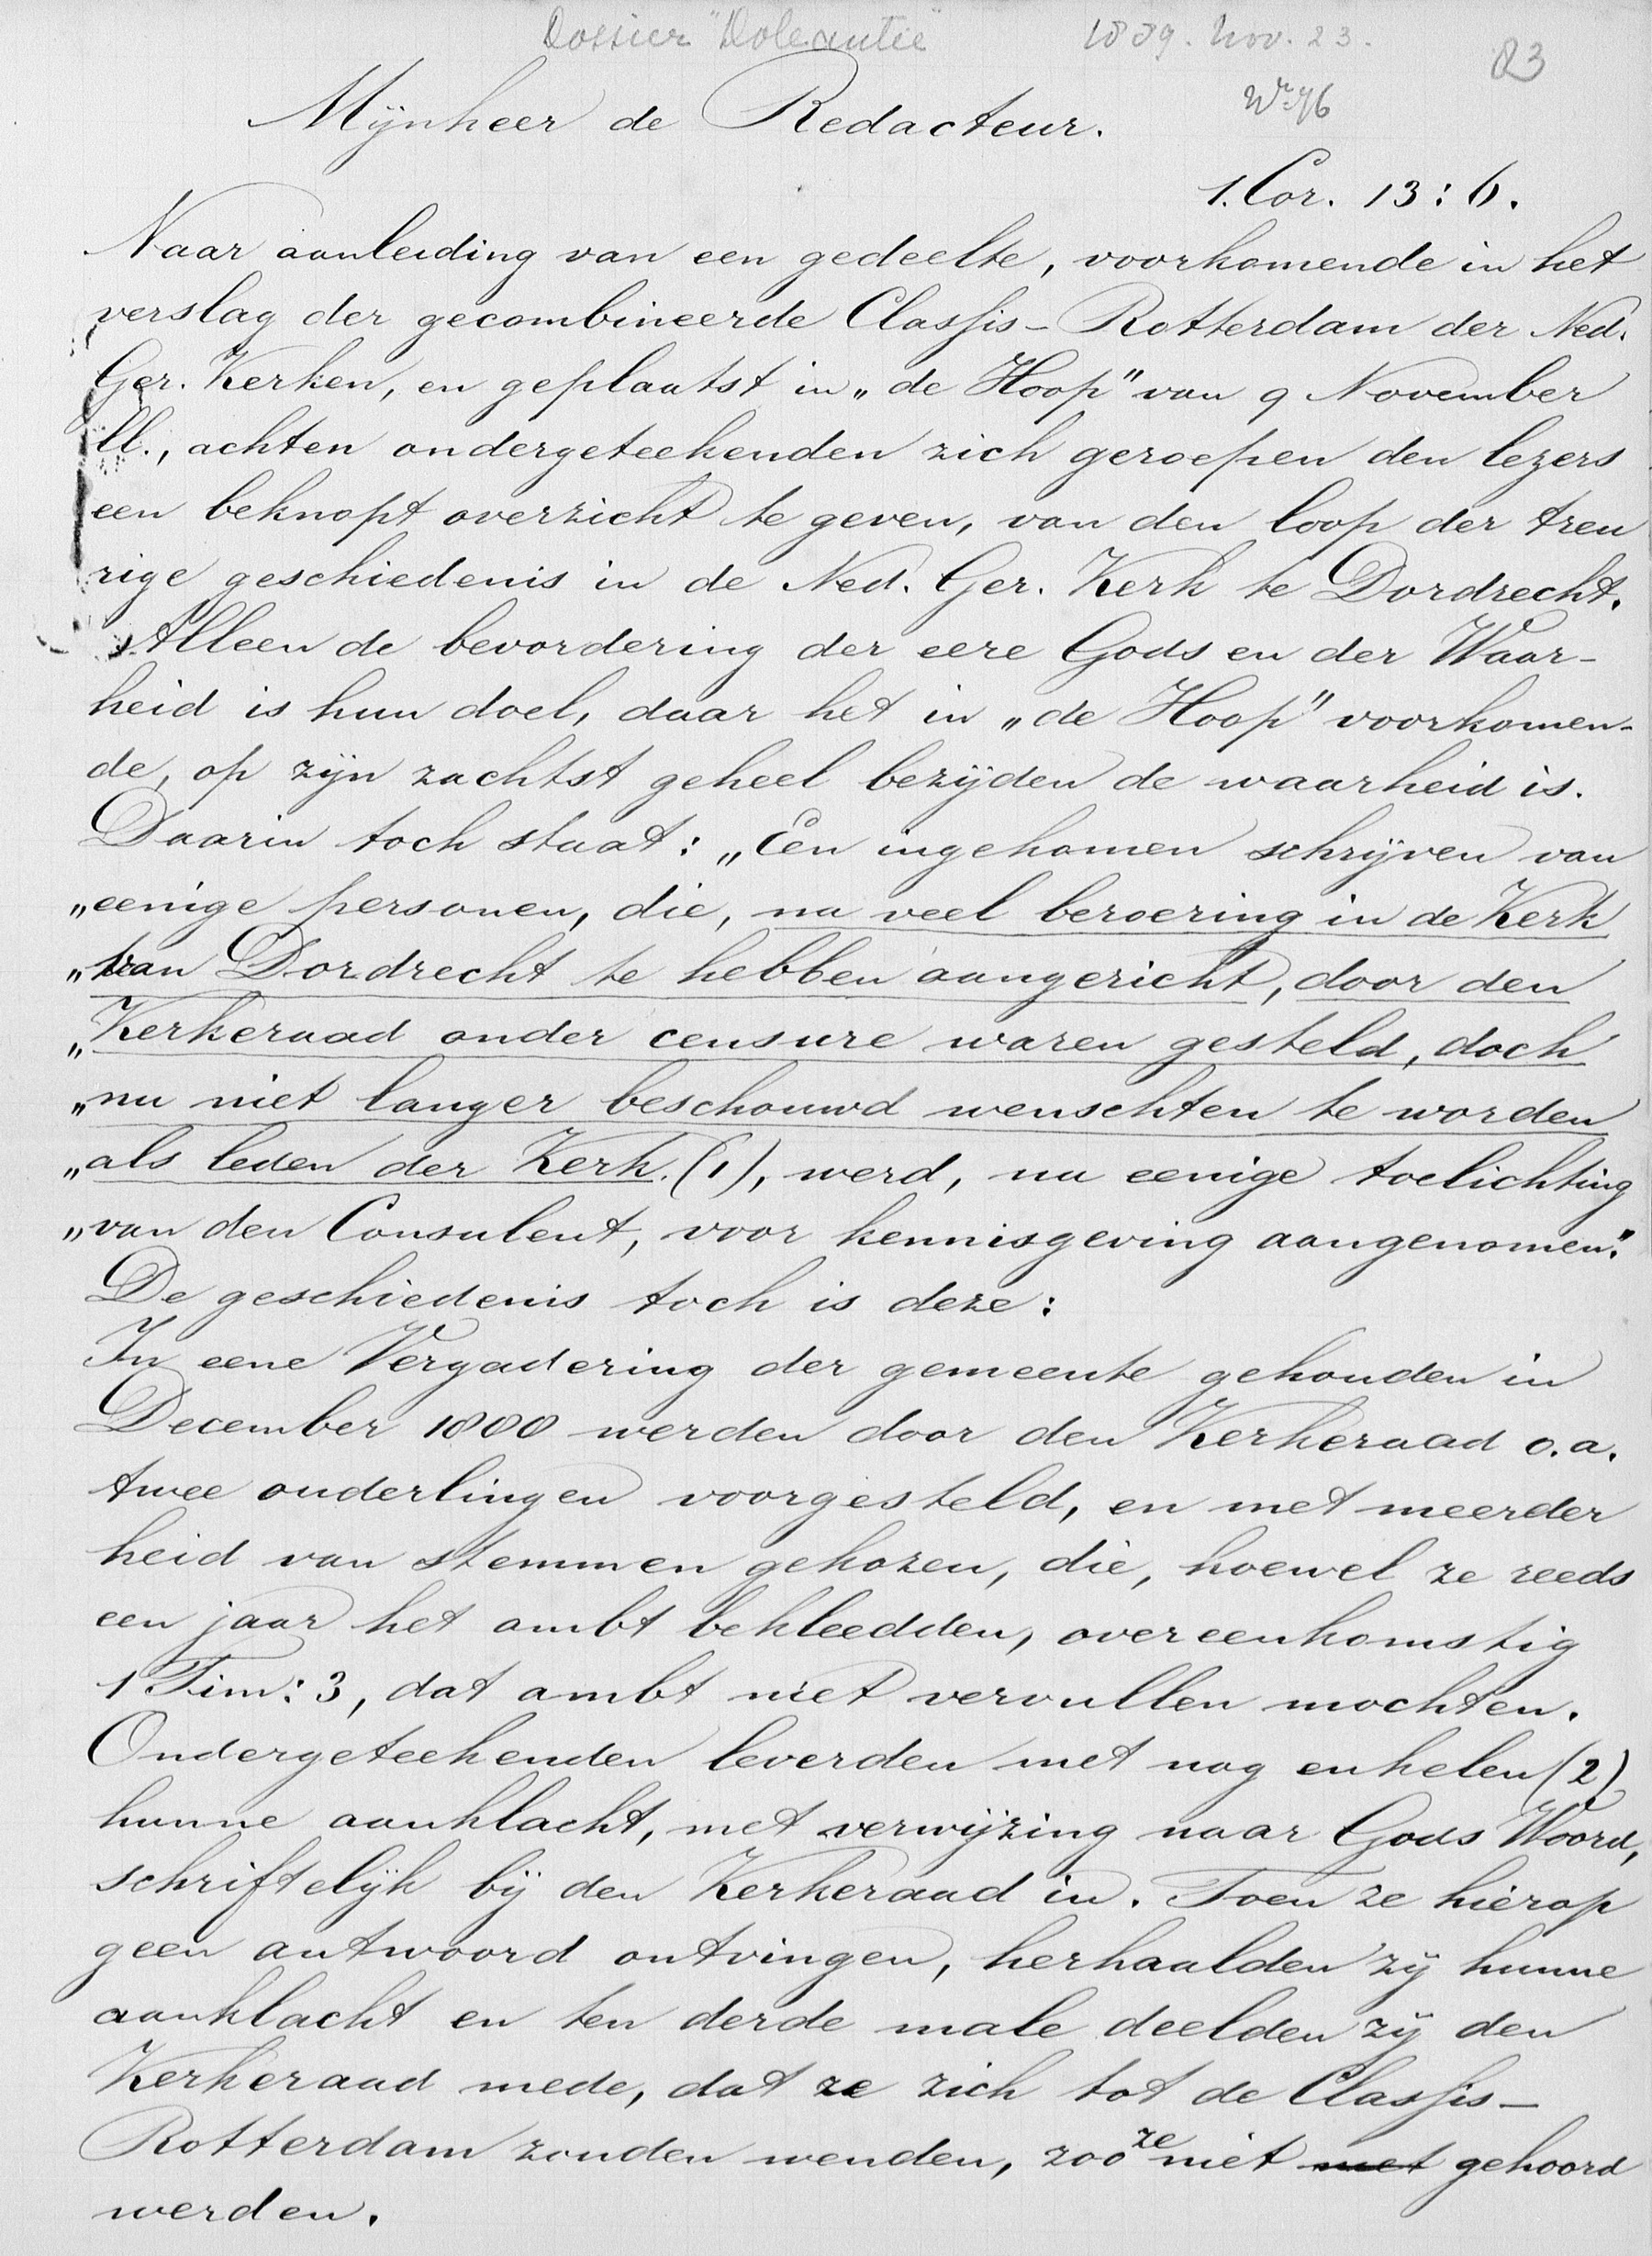 Dossier "Doleantie" 1889. Nov. 23.
83
Mijnheer de Redacteur.
No 76
1. Cor. 13:6.
Naar aanleiding van een gedeelte, voorkomende in het
verslag der gecombineerde Classis-Rotterdam der Ned.
Ger. Kerken, en geplaatst in „de Hoop" van 9 November
ll., achten ondergeteekenden zich geroepen den lezers
een beknopt overzicht te geven, van den loop der treu
rige geschiedenis in de Ned. Ger. Kerk te Dordrecht.
Alleen de bevordering der eere Gods en der Waar-
heid is hun doel, daar het in „de Hoop" voorkomen-
de, op zijn zachtst geheel bezijden de waarheid is.
Daarin toch staat: „Een ingekomen schrijven van
„eenige personen, die, na veel beroering in de Kerk
„van Dordrecht te hebben aangericht, door den
„Kerkeraad onder censure waren gesteld, doch
„nu niet langer beschouwd wenschten te worden
„als leden der Kerk. (1), werd, na eenige toelichting
„van den Consulent, voor kennisgeving aangenomen."
De geschiedenis toch is deze:
In eene Vergadering der gemeente gehouden in
December 1888 werden door den Kerkeraad o.a.
twee ouderlingen voorgesteld, en met meerder
heid van stemmen gekozen, die, hoewel ze reeds
een jaar het ambt bekleedden, overeenkomstig
1 Tim: 3, dat ambt niet vervullen mochten.
Ondergeteekenden leverden met nog enkelen (2)
hunne aanklacht, met verwijzing naar Gods Woord,
schriftelijk bij den Kerkeraad in. Toen ze hierop
geen antwoord ontvingen, herhaalden zij hunne
aanklacht en ten derde male deelden zij den
Kerkeraad mede, dat ze zich tot de Classis-
Rotterdam zouden wenden, zoo ze niet met gehoord
werden.